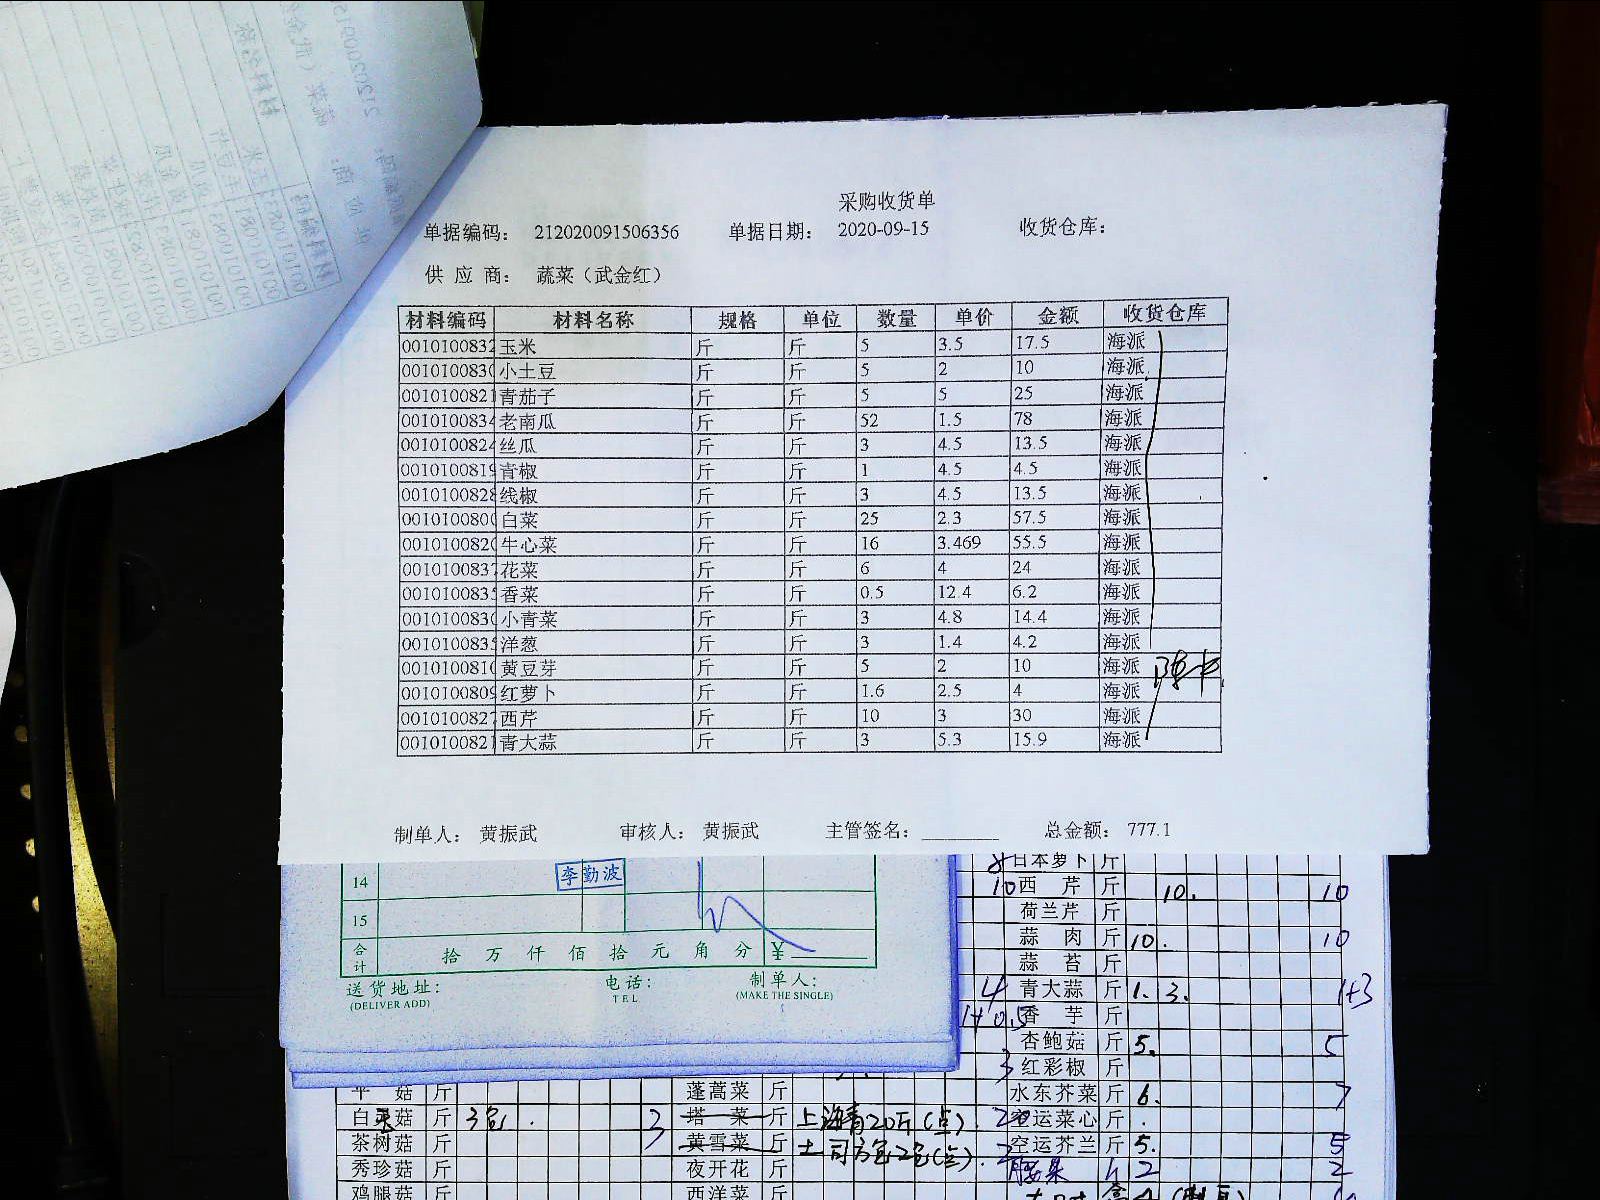 采购收货单
单据编码： 212020091506356 单据日期： 2020-09-15 收货仓库：
供 应 商： 蔬菜（武金红）
材料编码 材料名称 规格 单位 数量 单价 金额 收货仓库
0010100832 玉米 斤 斤 5 3.5 17.5 海派
001010083 小土豆 斤 斤 5 2 10 海派
0010100821 青茄子 斤 斤 5 5 25 海派
001010083 老南瓜 斤 斤 52 1.5 78 海派
001010082 丝瓜 斤 斤 3 4.5 13.5 海派
001010081 青椒 斤 斤 1 4.5 4.5 海派
001010082 线椒 斤 斤 3 4.5 13.5 海派
001010080 白菜 斤 斤 25 2.3 57.5 海派
001010082 牛心菜 斤 斤 16 3.469 55.5 海派
001010083 花菜 斤 斤 6 4 24 海派
001010083 香菜 斤 斤 0.5 12.4 6.2 海派
001010083 小青菜 斤 斤 3 4.8 14.4 海派
001010083 洋葱 斤 斤 3 1.4 4.2 海派
001010081 黄豆芽 斤 斤 5 2 10 海派
001010080 红萝卜 斤 斤 1.6 2.5 4 海派
001010082 西芹 斤 斤 10 3 30 海派
0010100821 青大蒜 斤 斤 3 5.3 15.9 海派
制单人： 黄振武 审核人： 黄振武 主管签名： 总金额： 777.1
14 李勤波
15
合计 拾 万 仟 佰 拾 元 角 分 ¥
送货地址： 电话： 制单人：
(DELIVER ADD) TEL (MAKE THE SINGLE)
8 日本萝卜 斤
10 西 芹 斤 10. 10
荷兰芹 斤
蒜 肉 斤 10. 10
蒜 苔 斤
4 青大蒜 斤 1. 3. 1+3
1+0.5 香 芋 斤
杏鲍菇 斤 5. 5
3 红彩椒 斤
平 菇 斤 蓬蒿菜 斤 水东芥菜 斤 6. 7
白 菇 斤 3包 . 3 塔 菜 斤 上海青20斤(点). 20 空运菜心 斤 .
茶树菇 斤 黄雪菜 斤 土司方包2包(点). 2 空运芥兰 斤 5. 5
秀珍菇 斤 夜开花 斤 腰果 2 2
鸡腿菇 斤 西洋菜 斤